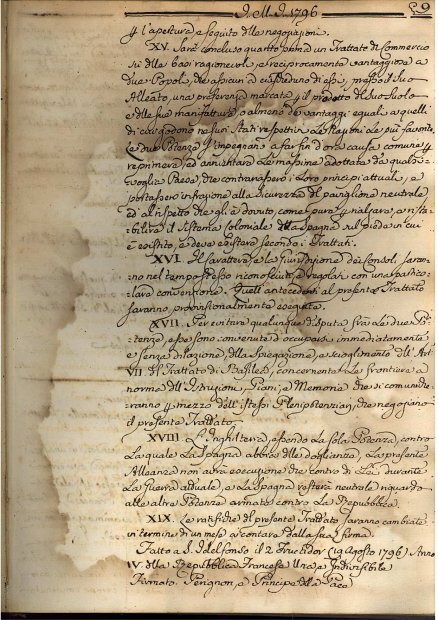 I. M. I. 1796 59
p l'apertura e seguito delle negoziazioni.
XV. Sarà concluso quanto prima un Trattato di Commercio
su delle basi ragionevoli e reciprocamente vantaggiose a
due Popoli, che assicuri a ciascheduno di essi, presso il Suo
Alleato, una preferenza marcata p il prodotto del Suo Suolo
e delle sue manifatture o almeno de vantaggi eguali a quelli
di cui godono ne suoi Stati respettivi le Nazioni le più favorite.
Le due Potenze s'impegnano a far fin d'ora causa comune p
reprimere ed annientare le massime adottate da qualsi=
=voglia Paese, che contrariassero i Loro principj attuali, e
portassero infrazione alla Sicurezza del paviglione neutrale
ed al rispetto che gli è dovuto, come pure p rialzare, e ista=
bilire il Sistema Coloniale della Spagna sul piede in cui
è esistito, e deve esistere secondo i Trattati.
XVI. Il Carattere, e la Giurisdizione dei Consoli saran=
no nel tempo stesso riconosciuti, e regolati con una partico=
=lare convenzione. Quelli antecedenti al presente Trattato
saranno provvisionalmente eseguiti.
XVII. Per evitare qualunque disputa fra le due Po=
=tenze, esse sono convenute d'occuparsi immediatamente
e senza dilazione, della Spiegazione, e scioglimento dell' Art.
VII del Trattato di Basilea, concernente le frontiere a
norma dell' Istruzioni, Piani, e Memorie che si comuniche=
=ranno p mezzo dell' istessi Plenipotenziari, che negoziano
il presente Trattato.
XVIII. L'Inghilterra essendo la sola Potenza, contro
la quale la Spagna abbia delle doglianze, la presente
Alleanza non avrà esecuzione che contro di Lei durante
la Guerra attuale, e la Spagna resterà neutrale riguardo
alle altre Potenze armate contro la Repubblica.
XIX. Le ratifiche del presente Trattato saranno cambiate
in termine di un mese a contare dalla sua firma.
Fatto a S. Idelfonso il 2 Fructidor (19 Agosto 1796) Anno
IV. della Repubblica Francese Una, e Indivisibile
Firmato: Perignon, e Principe della Pace